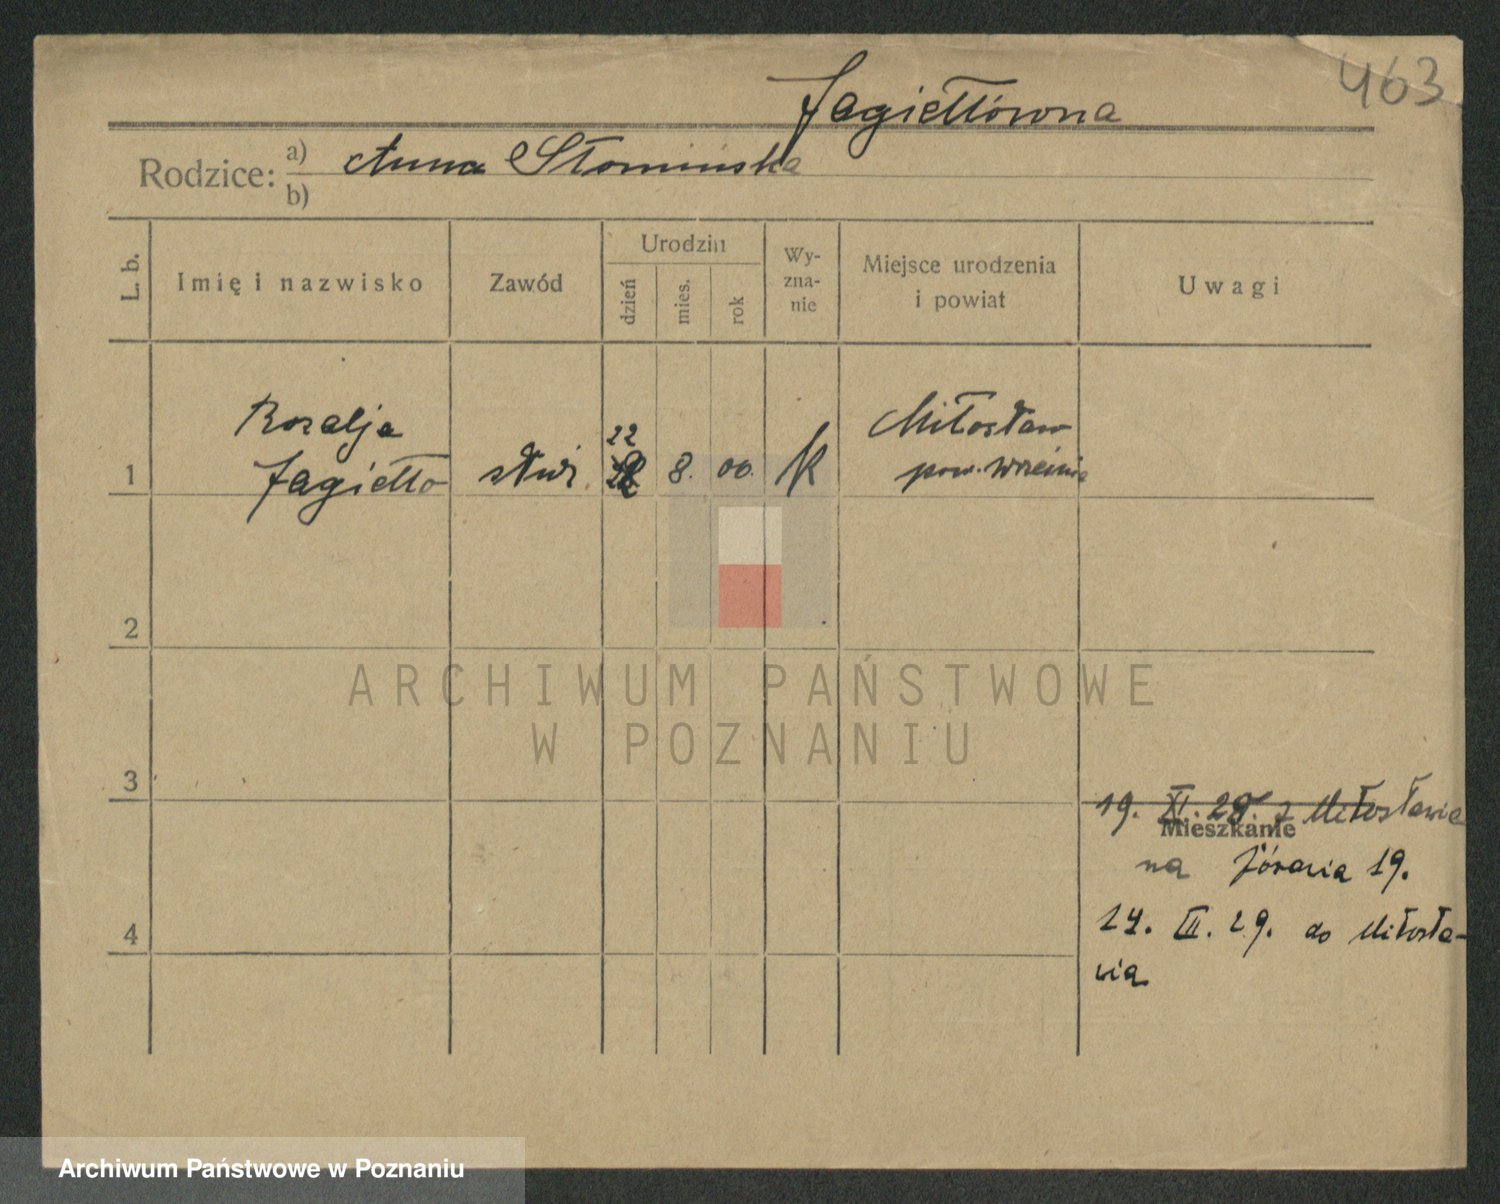 463
Jagiełłówna
Rodzice: a) Anna Słomińska
b)
L. b.
Imię i nazwisko
Zawód
Urodzin
dzień
mies.
rok
Wy-
zna-
nie
Miejsce urodzenia
i powiat
Uwagi
1
Rozalja
Jagiełło
służ.
22
8. 00. K
Miłosław
pow. Września
2
3
4
19. XI. 28. z Miłosławia
Mieszkanie
na Jóracia 19.
24. III. 29. do Miłosła-
wia
ARCHIWUM PAŃSTWOWE
W POZNANIU
Archiwum Państwowe w Poznaniu